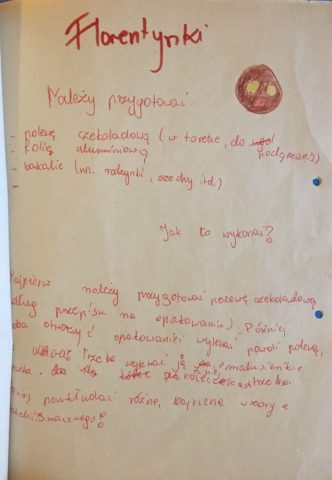 Florentynki
Należy przygotować:
- polewę czekoladową (w torebce, do podgrzania)
- folię aluminiową
- bakalie (np. rodzynki, orzechy itd.)
-
Jak to wykonać?
Najpierw należy przygotować polewę czekoladową
według przepisu na opakowaniu). Później
trzeba otworzyć opakowanie i wylewać powoli polewę,
UWAGA! Trzeba wylewać ją malutkie
trzeba
nakładać różne, bajeczne wzory z
bakalii. Smacznego!